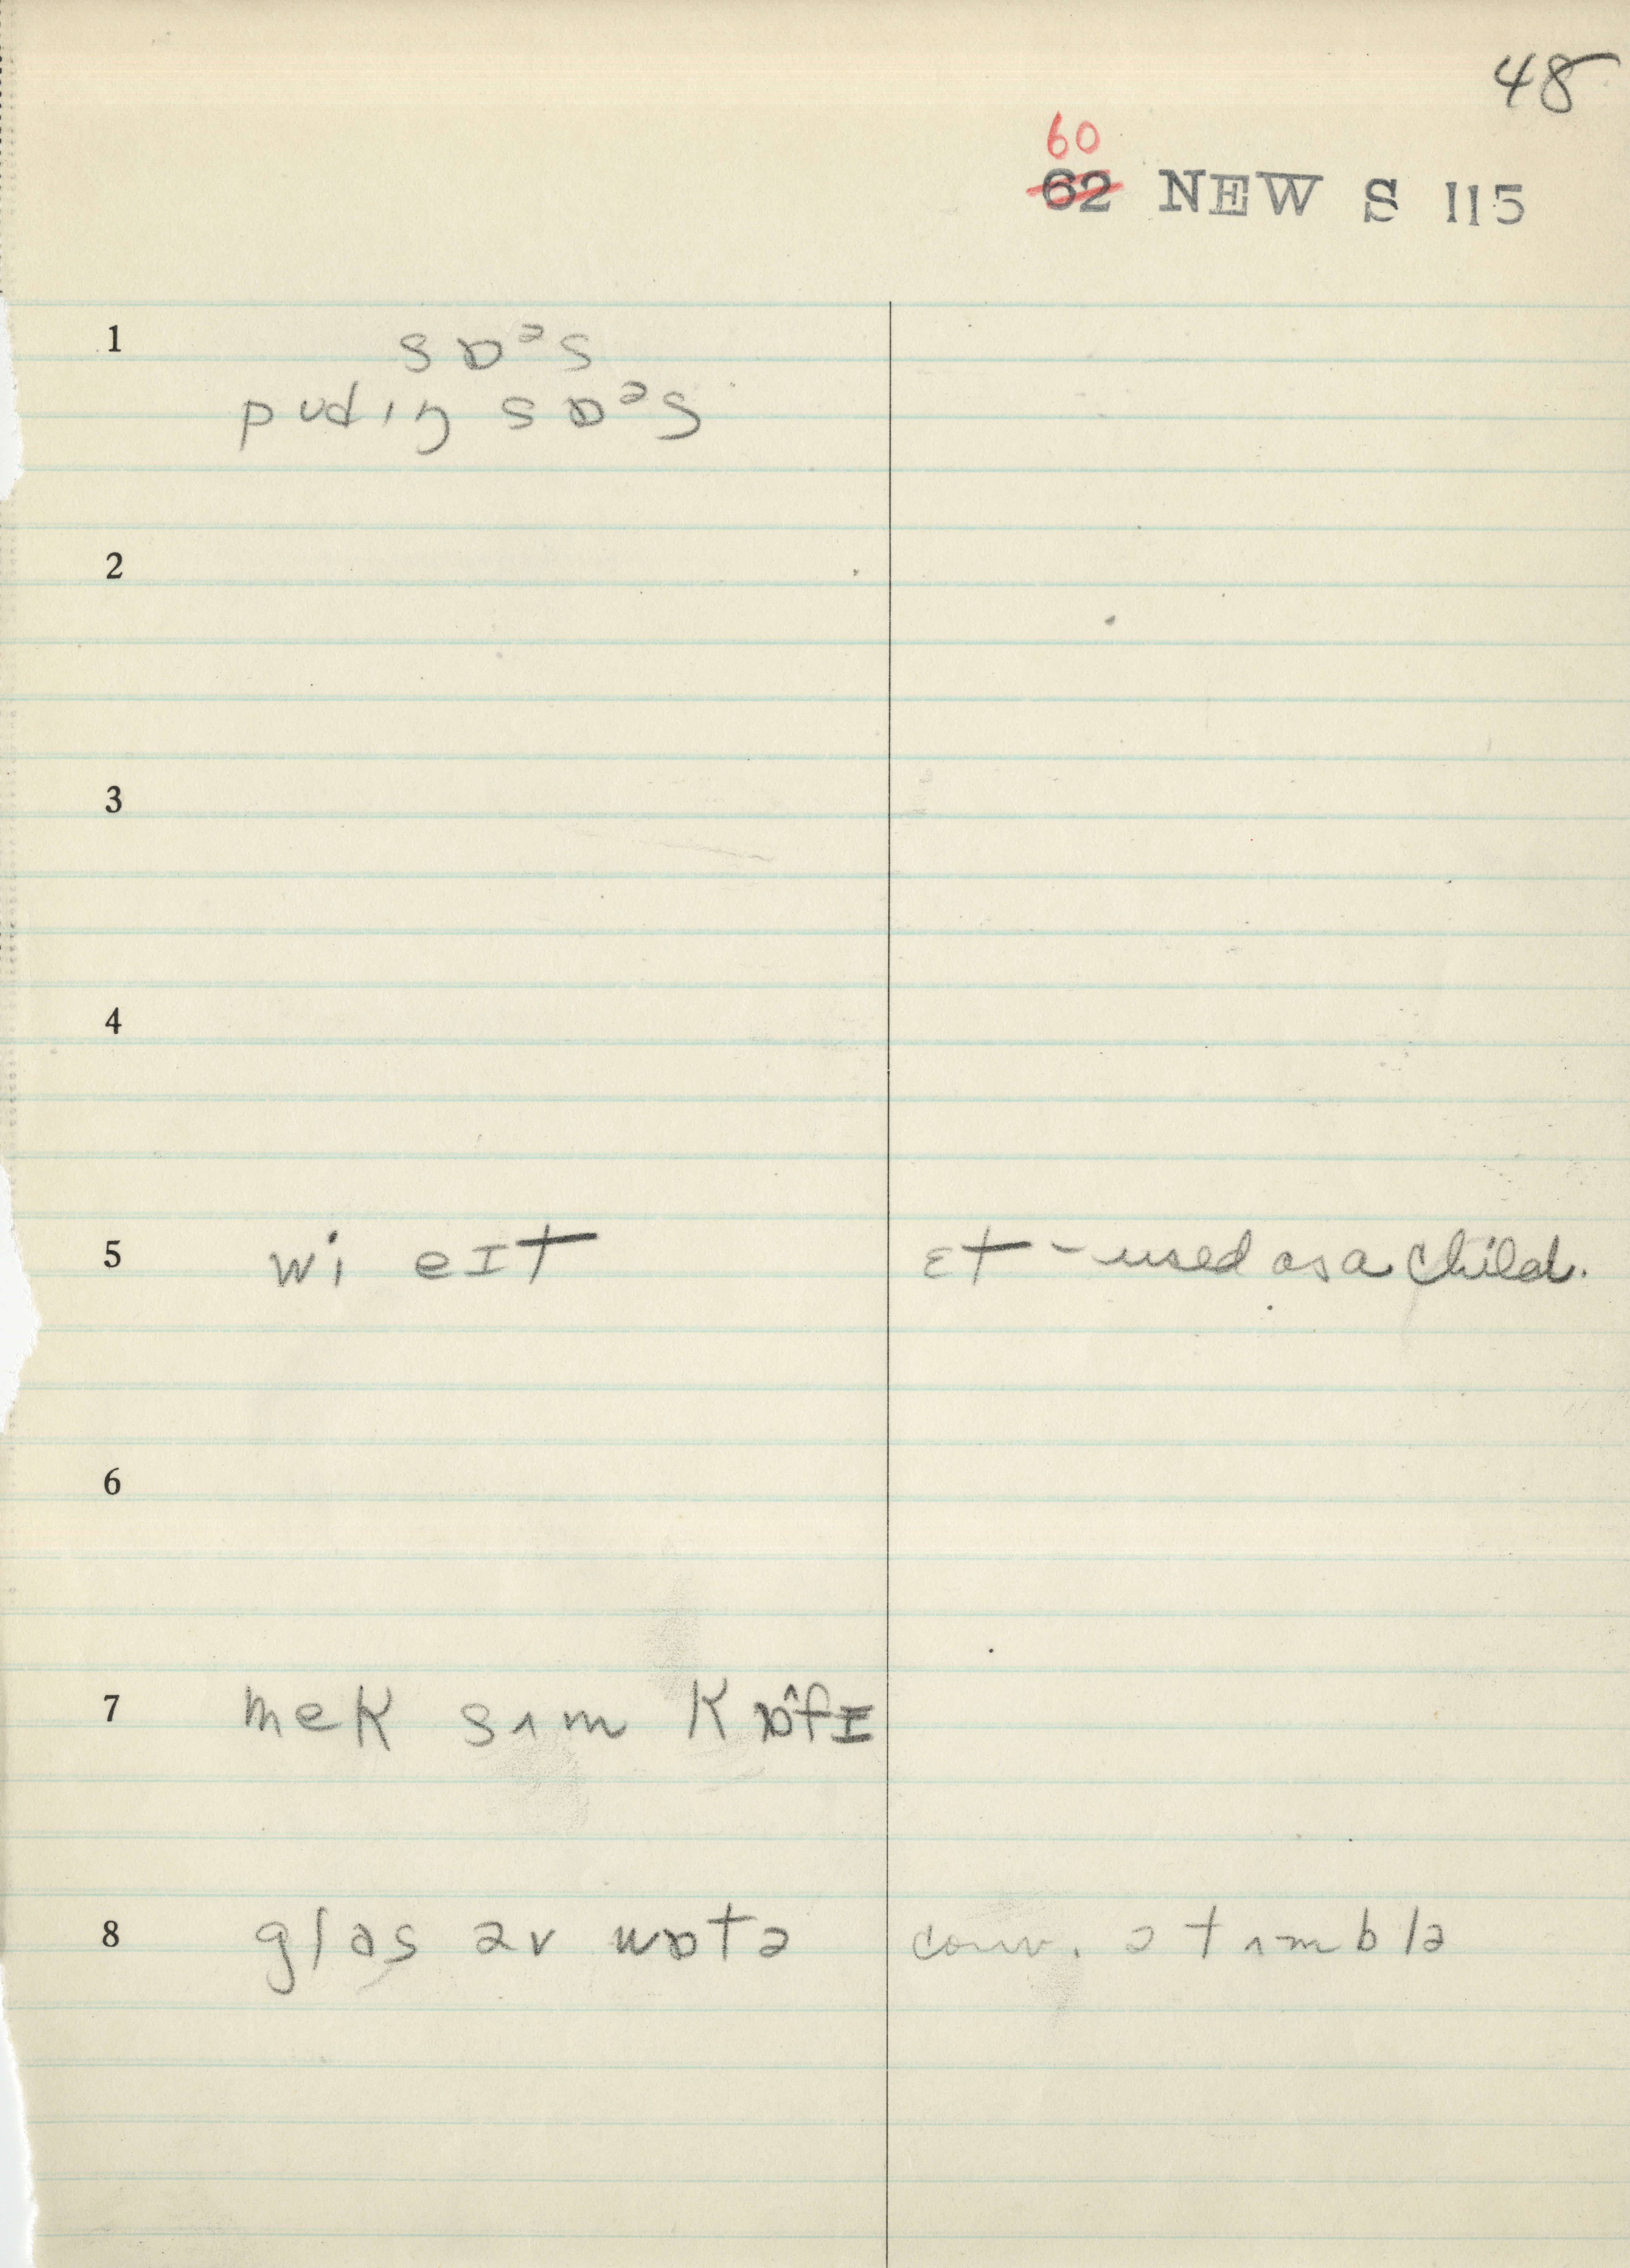 48
60
62 NEW S 115
1 sɒᵊs
pudɪŋ sɒᵊs
2
3
4
5 wi eɪt ɛt - used as a child.
6
7 mek sʌm kɒ̂fɪ
8 glas əv wɒtə conv. ə tʌmblə